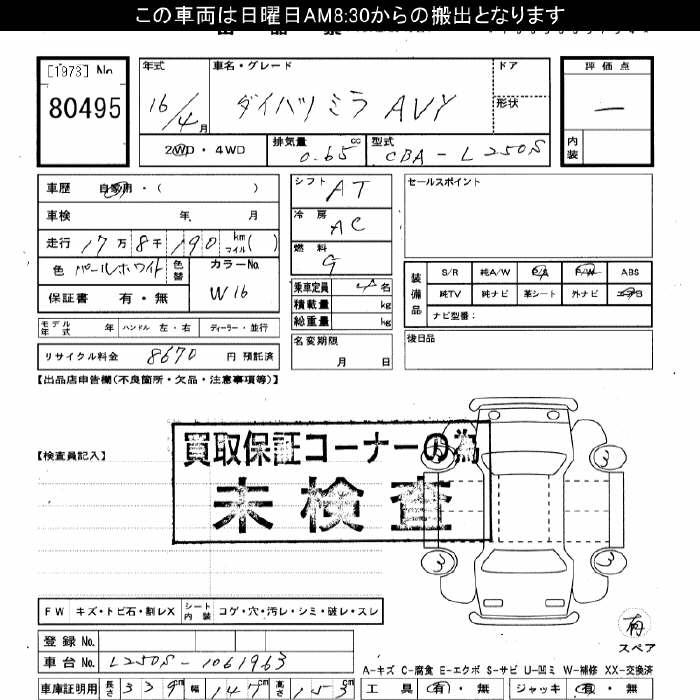 この車両は日曜日AM8:30からの搬出となります
[1973] No
80495
年式 16/4月
車名・グレード ダイハツ ミラ AVY
ドア
形状
評価点
―
内装
2WD・4WD
排気量 0.65 cc
型式 CBA-L250S
車歴 自家用・( )
車検 年 月
走行 17万8千190 km マイル( )
色 パールホワイト 色替 カラーNo. W16
保証書 有・無
モデル年式 年 ハンドル 左・右 ディーラー・並行
リサイクル料金 8670 円 預託済
シフト AT
冷房 AC
燃料 G
乗車定員 4名
積載量 kg
総重量 kg
名変期限 月 日
セールスポイント
装備品
S/R 純A/W P/S P/W ABS
純TV 純ナビ 革シート 外ナビ エアB
ナビ型番:
後日品
【出品店申告欄(不良箇所・欠品・注意事項等)】
【検査員記入】
買取保証コーナーの為
未検査
3 3
3 3
有
スペア
FW キズ・トビ石・割レX シート内装 コゲ・穴・汚レ・シミ・破レ・スレ
登録 No.
車台 No. L250S-1061963
A-キズ C-腐食 E-エクボ S-サビ U-凹ミ W-補修 XX-交換済
車庫証明用 長さ 339cm 幅 147cm 高さ 153cm
工具 有・無 ジャッキ 有・無